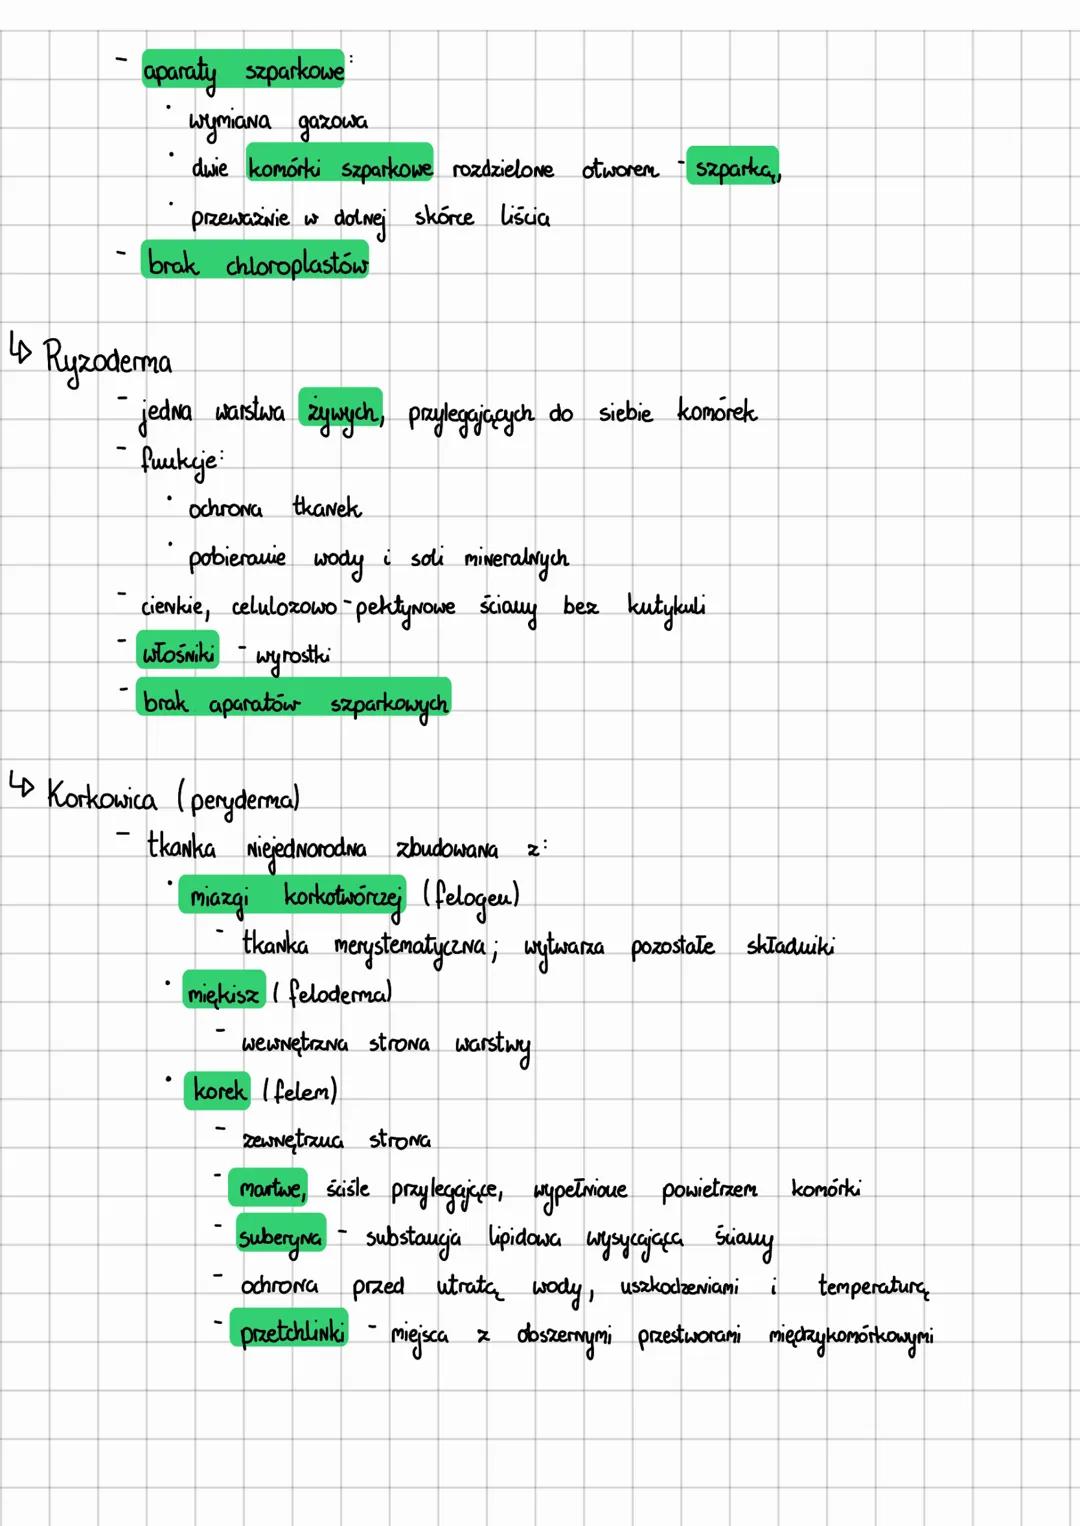 - aparaty szparkowe:
• wymiana gazowa
• dwie komórki szparkowe rozdzielone otworem - szparką,
• przeważnie w dolnej skórce liścia
- brak chloroplastów
↳ Ryzoderma
- jedna warstwa żywych, przylegających do siebie komórek
- funkcje:
• ochrona tkanek
• pobieranie wody i soli mineralnych
- cienkie, celulozowo-pektynowe ściany bez kutykuli
- włośniki - wyrostki
- brak aparatów szparkowych
↳ Korkowica (peryderma)
- tkanka niejednorodna zbudowana z:
• miazgi korkotwórczej (felogen)
- tkanka merystematyczna; wytwarza pozostałe składniki
• miękisz (feloderma)
- wewnętrzna strona warstwy
• korek (felem)
- zewnętrzna strona
- martwe, ściśle przylegające, wypełnione powietrzem komórki
- suberyna - substancja lipidowa wysycająca ściany
- ochrona przed utratą wody, uszkodzeniami i temperaturą
- przetchlinki - miejsca z obszernymi przestworami międzykomórkowymi